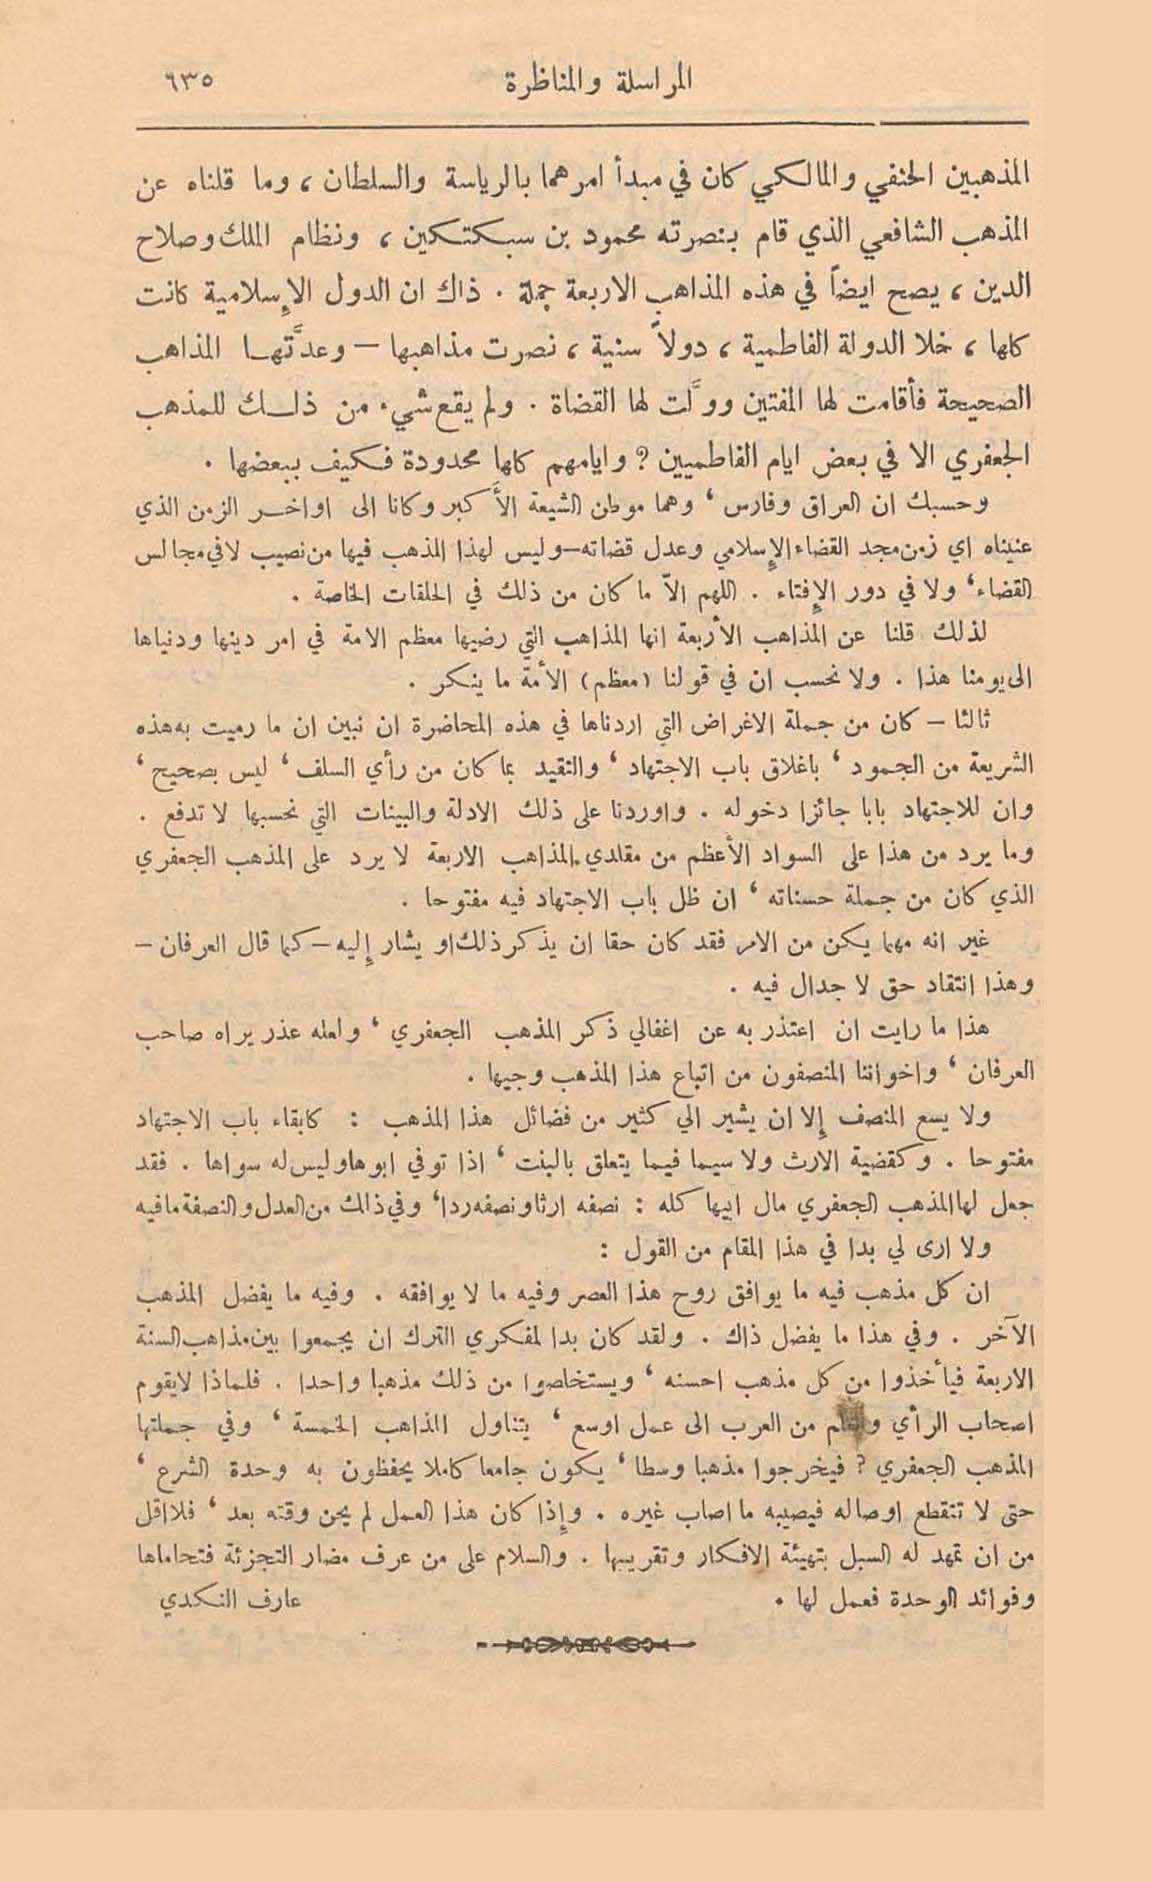 المراسلة والمناظرة ٦٣٥
المذهبين الحنفي والمالكي كان في مبدأ امرهما بالرياسة والسلطان، وما قلناه عن
المذهب الشافعي الذي قام بنصرته محمود بن سبكتكين، ونظام الملك وصلاح
الدين، يصح ايضاً في هذه المذاهب الاربعة جملة. ذاك ان الدول الإسلامية كانت
كلها، خلا الدولة الفاطمية، دولاً سنية، نصرت مذاهبها — وعدَّتها المذاهب
الصحيحة فأقامت لها المفتين وولَّت لها القضاة. ولم يقع شيء من ذلك للمذهب
الجعفري الا في بعض ايام الفاطميين؟ وايامهم كلها محدودة فكيف ببعضها.
وحسبك ان العراق وفارس، وهما موطن الشيعة الأَكبر وكانا الى اواخر الزمن الذي
عنيناه اي زمن مجد القضاء الإسلامي وعدل قضاته — وليس لهذا المذهب فيها من نصيب لا في مجالس
القضاء، ولا في دور الإفتاء. اللهم الاّ ما كان من ذلك في الحلقات الخاصة.
لذلك قلنا عن المذاهب الأربعة انها المذاهب التي رضيها معظم الامة في امر دينها ودنياها
الى يومنا هذا. ولا نحسب ان في قولنا (معظم) الأمة ما ينكر.
ثالثا — كان من جملة الاغراض التي اردناها في هذه المحاضرة ان نبين ان ما رميت به هذه
الشريعة من الجمود، باغلاق باب الاجتهاد، والتقيد بما كان من رأي السلف، ليس بصحيح،
وان للاجتهاد بابا جائزا دخوله. واوردنا على ذلك الادلة والبينات التي نحسبها لا تدفع.
وما يرد من هذا على السواد الأعظم من مقلدي المذاهب الاربعة لا يرد على المذهب الجعفري
الذي كان من جملة حسناته، ان ظل باب الاجتهاد فيه مفتوحا.
غير انه مهما يكن من الامر فقد كان حقا ان يذكر ذلك او يشار إليه — كما قال العرفان —
وهذا انتقاد حق لا جدال فيه.
هذا ما رايت ان اعتذر به عن اغفالي ذكر المذهب الجعفري، ولعله عذر يراه صاحب
العرفان، واخواننا المنصفون من اتباع هذا المذهب وجيها.
ولا يسع المنصف إلا ان يشير الي كثير من فضائل هذا المذهب : كابقاء باب الاجتهاد
مفتوحا. وكقضية الارث ولا سيما فيما يتعلق بالبنت، اذا توفي ابوها وليس له سواها. فقد
جعل لها المذهب الجعفري مال ابيها كله : نصفه ارثا ونصفه ردا، وفي ذلك من العدل والنصفة ما فيه
ولا ارى لي بدا في هذا المقام من القول :
ان كل مذهب فيه ما يوافق روح هذا العصر وفيه ما لا يوافقه. وفيه ما يفضل المذهب
الآخر. وفي هذا ما يفضل ذاك. ولقد كان بدا لمفكري الترك ان يجمعوا بين مذاهب السنة
الاربعة فيأخذوا من كل مذهب احسنه، ويستخلصوا من ذلك مذهبا واحدا. فلماذا لا يقوم
اصحاب الرأي من العرب الى عمل اوسع، يتناول المذاهب الخمسة، وفي جملتها
المذهب الجعفري؟ فيخرجوا مذهبا وسطا، يكون جامعا كاملا يحفظون به وحدة الشرع،
حتى لا تنقطع اوصاله فيصيبه ما اصاب غيره. وإذا كان هذا العمل لم يحن وقته بعد، فلا اقل
من ان تمهد له السبل بتهيئة الافكار وتقريبها. والسلام على من عرف مضار التجزئة فتحاماها
وفوائد الوحدة فعمل لها. عارف النكدي